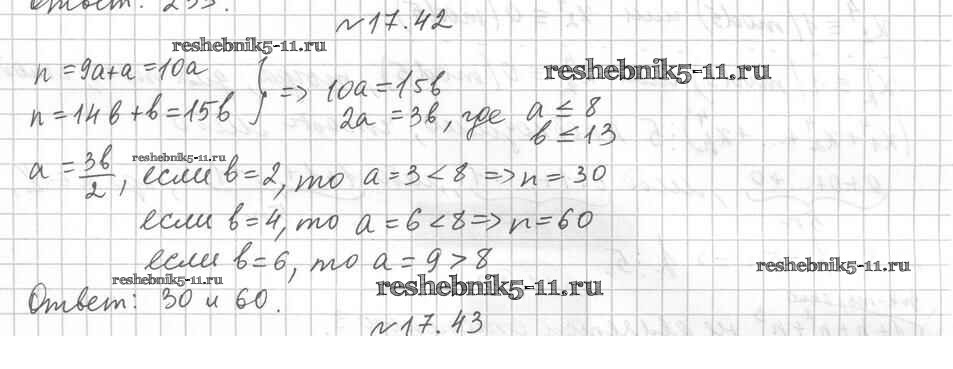 Ответ: 255.
№17.42
reshebnik5-11.ru
n = 9a + a = 10a
n = 14b + b = 15b } => 10a = 15b
reshebnik5-11.ru
2a = 3b, где a ≤ 8
b ≤ 13
reshebnik5-11.ru
a = 3b/2, если b = 2, то a = 3 < 8 => n = 30
если b = 4, то a = 6 < 8 => n = 60
если b = 6, то a = 9 > 8
reshebnik5-11.ru
reshebnik5-11.ru
reshebnik5-11.ru
Ответ: 30 и 60.
№17.43